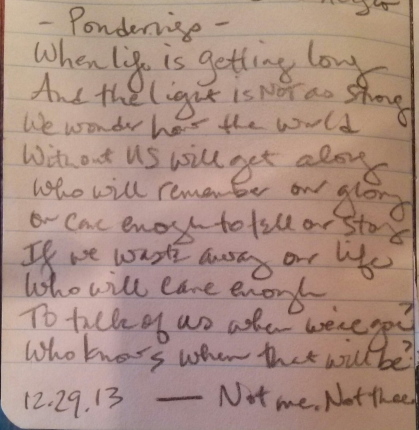 - Ponderings -
When life is getting long
And the light is Not as strong
We wonder how the world
Without us will get along
Who will remember our glory
or care enough to tell our story
If we waste away our life
Who will care enough
To talk of us when we're gone?
Who knows when that will be?
12.29.13 — Not me. Not thee